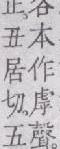 各本作虖聲。
正。丑居切。五